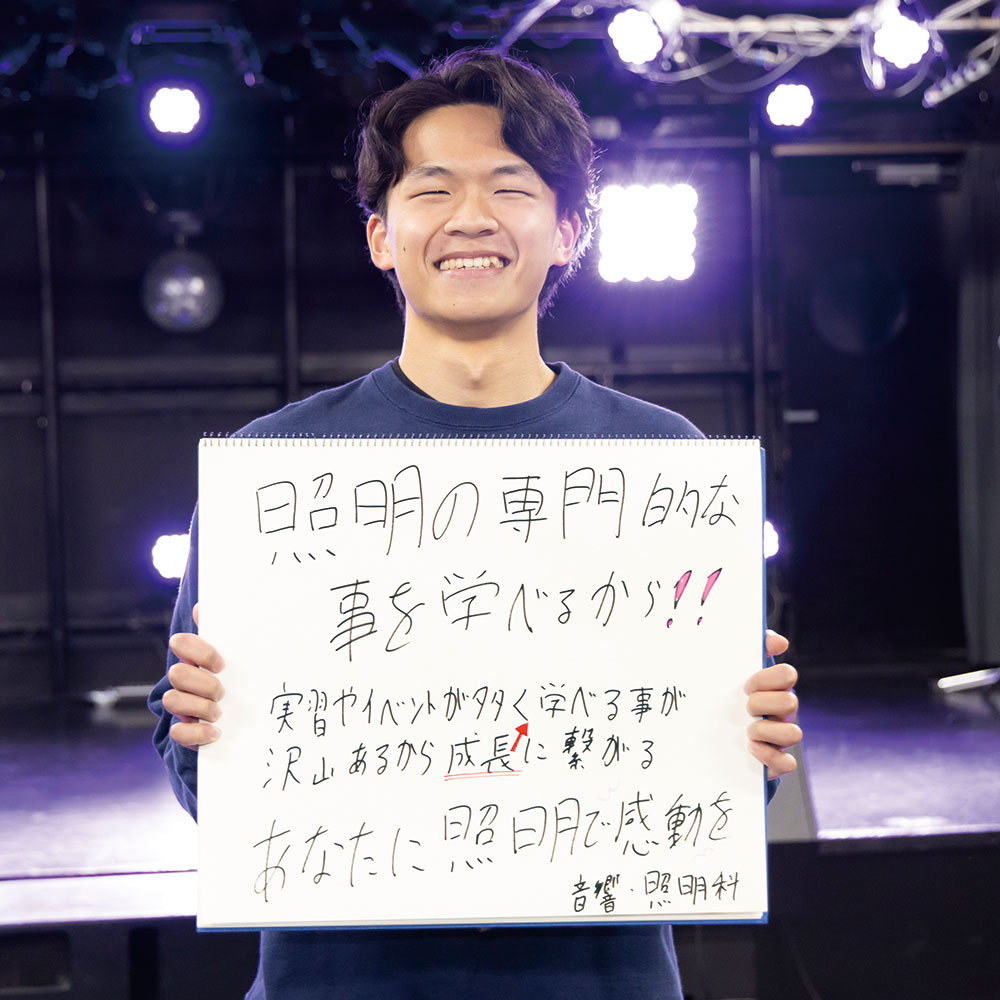 照明の専門的な
事を学べるから!!
実習やイベントが多く学べる事が
沢山あるから成長に繋がる
あなたに照明で感動を
音響・照明科